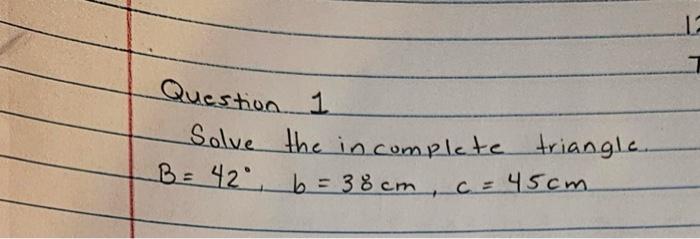 Question 1
Solve the incomplete triangle.
B = 42°, b = 38 cm, c = 45cm